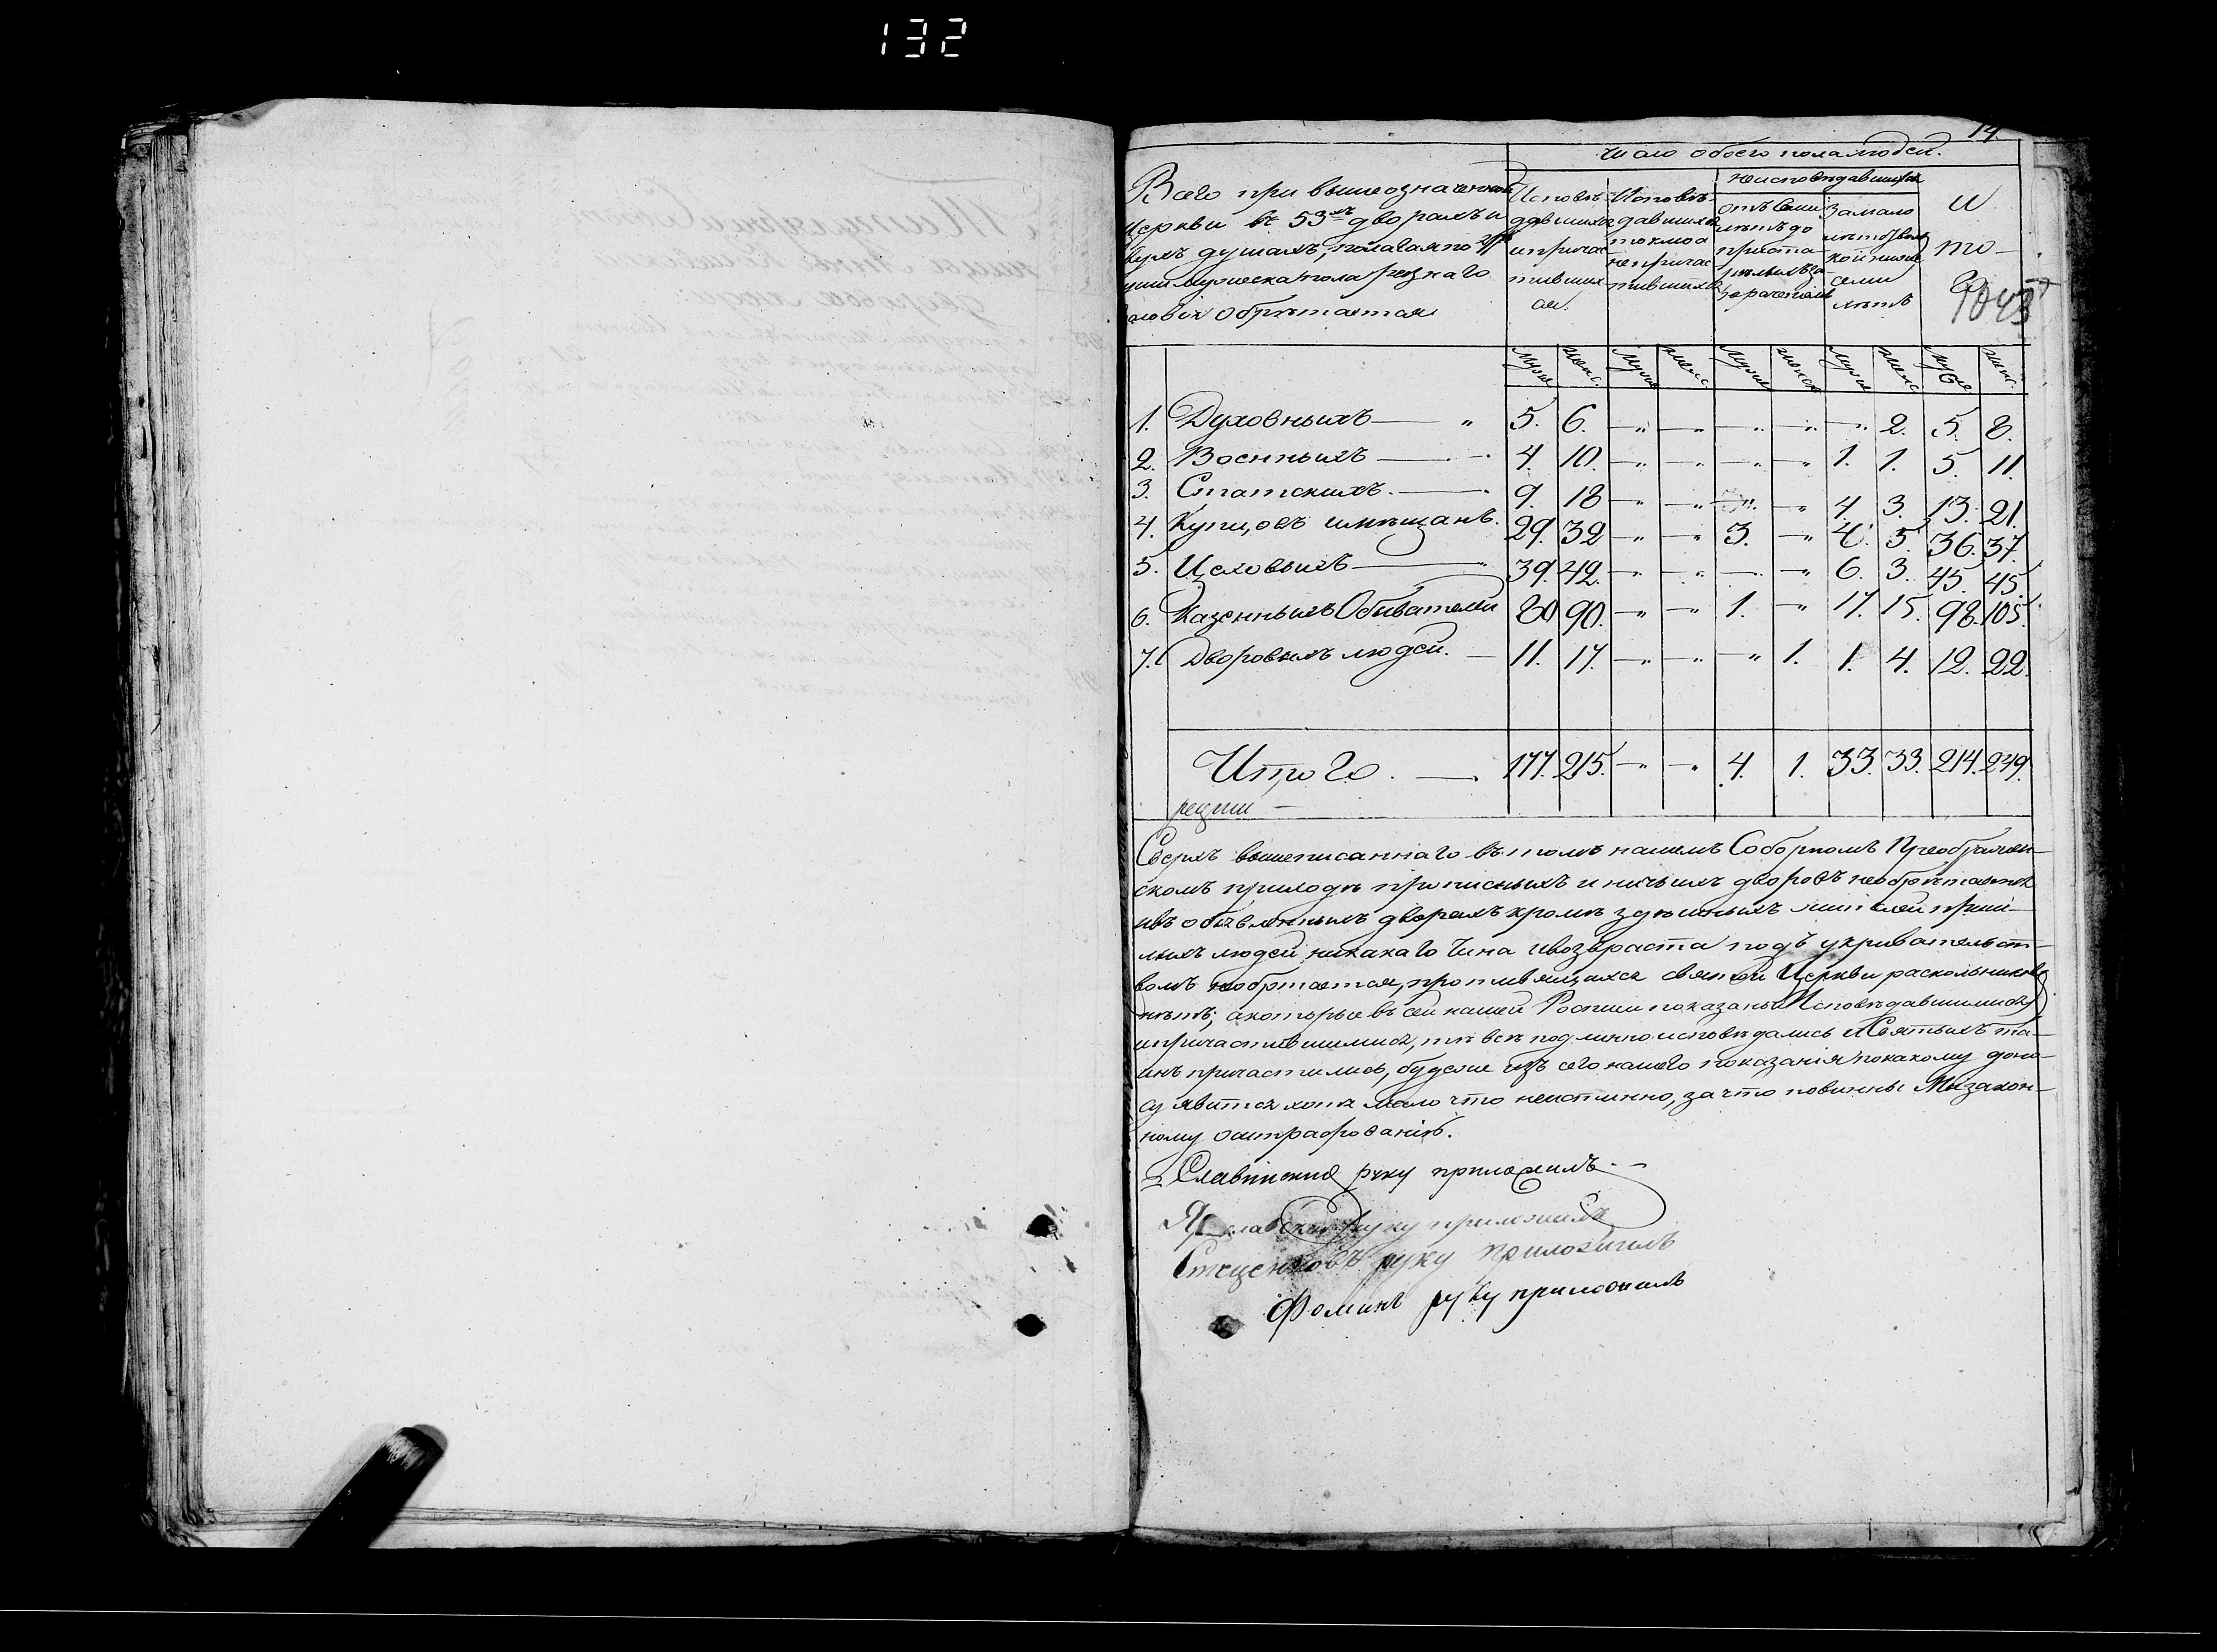 132
14
Число обоего пола людей.
Всего при вышеозначенной
церкви въ 53хъ дворахъ и
душахъ, полагая по
души мужеска пола разнаго
Обрѣтается
Исповѣ-
давшихся
и причас
тивших
ся.
Исповѣ-
давшихся
токмо а
непричас
тившихся
Неисповѣдавшихся
отъ Семи
лѣтъ до
За мало
лѣтством
кои ниже
семи
лѣтъ
И
то-
го
1043
Муже Женс. Муже Женс. Муже Женск Муже Женс Муже Женс.
1. Духовныхъ — " 5. 6. —"— —"— —"— —"— —"— 2. 5. 8.
2. Военныхъ — 4. 10. —"— —"— —"— —"— 1. 1. 5. 11.
3. Статскихъ. — 9. 18 —"— —"— —"— —"— 4. 3. 13. 21.
4. Купцовъ и мѣщанъ. 29. 32 —"— —"— 3. —"— 4. 5. 36. 37.
5. Цеховыхъ — 39. 42. —"— —"— —"— —"— 6. 3. 45. 45.
6. Казенныхъ Обывателей 80 90. —"— —"— 1. —"— 17. 15. 98. 105.
7. Дворовыхъ людей. — 11. 17. —"— —"— —"— 1. 1. 4. 12. 22.
Итого. — 177. 215. —"— —"— 4. 1. 33. 33. 214. 249.
Сверхъ вышеписаннаго въ томъ нашемъ Соборномъ Преображен-
скомъ приходѣ прописныхъ и ничьихъ дворовъ необрѣтается
и въ объявленныхъ дворахъ кромѣ здѣшныхъ жителей приш-
лыхъ людей никакаго чина и возвраста подъ укривательст-
вомъ необрѣтается, противящихся святой Церкви раскольниковъ
нѣтъ; а которые въ сей нашей Росписи показаны Исповѣдавшимися
и причастившимися, тѣ всѣ подлинно исповѣдались и Святыхъ та-
инъ причастились, будеже изъ сего нашего показанія по какому доно-
су явится хотя мало что неистинно, за что повинны Мы закон-
ному оштрафованію.
Славинский руку приложилъ. —
Ярославский руку приложилъ
Стеценковъ руку приложилъ
Фоминъ руку приложилъ